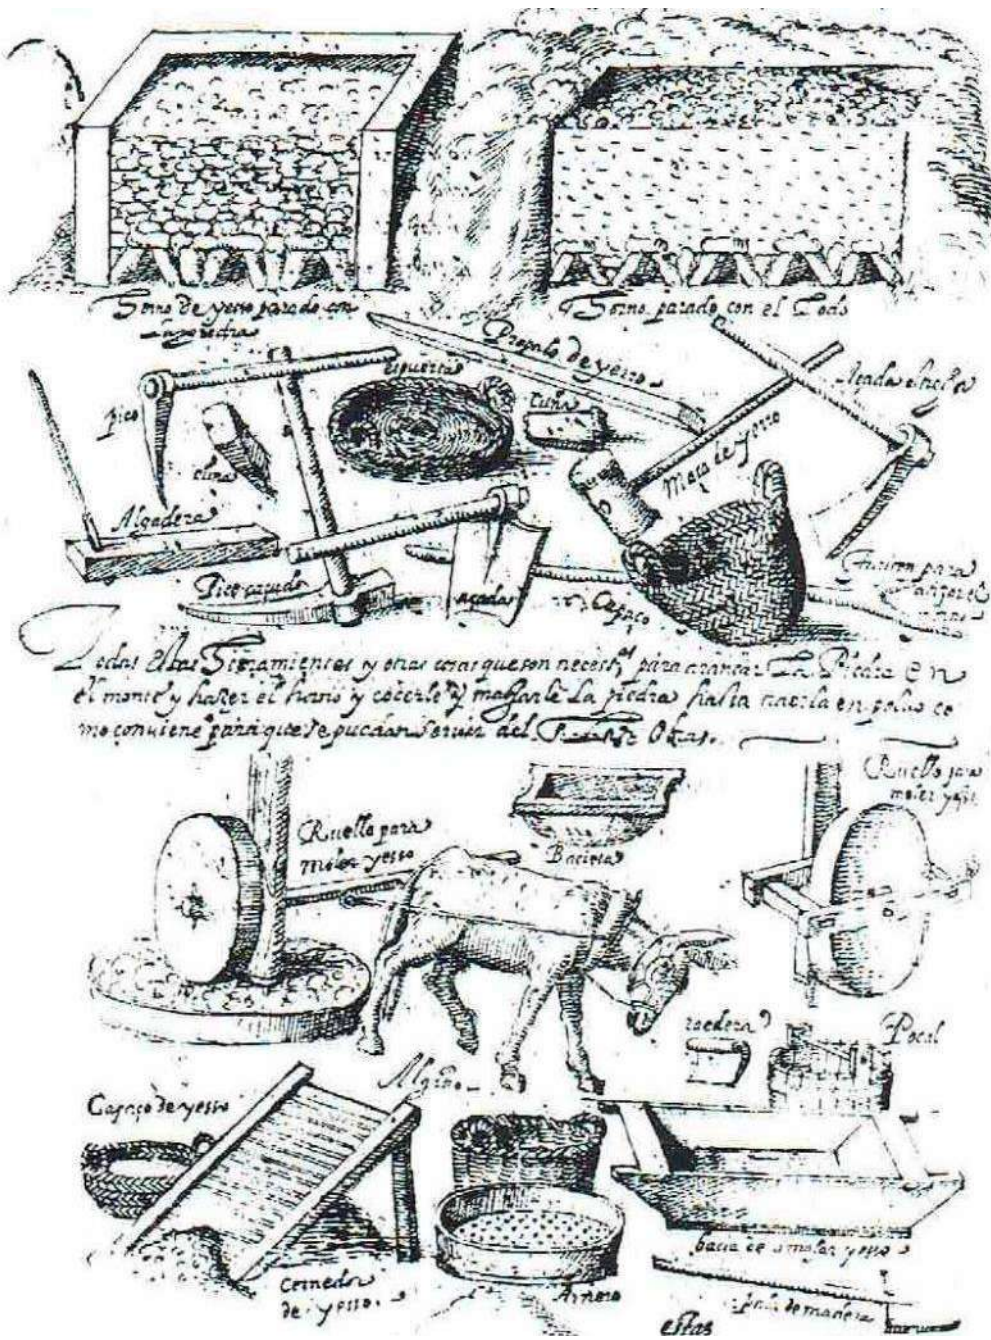 forno de yesso parado con
la piedra
forno parado con el todo
Propalo de yesso
espuerta
cuña
Açada
pico
cuña
Maça de fierro
Algadera
Pico
Açada
Capaço
para
Todas estas ferramientas y otras cosas que son para arancar La Piedra en
el monte y hazer el horno y cocerle y La piedra hasta en polvo co
mo conviene para que se puedan servir del. Obras.
Ruello para
moler yesso
Ruello para
moler yesso
Bacieta
raedera
Pocal
Capaço de yesso
Arnero
Cernedor
de yesso.
bacia de yesso
de madera
estas